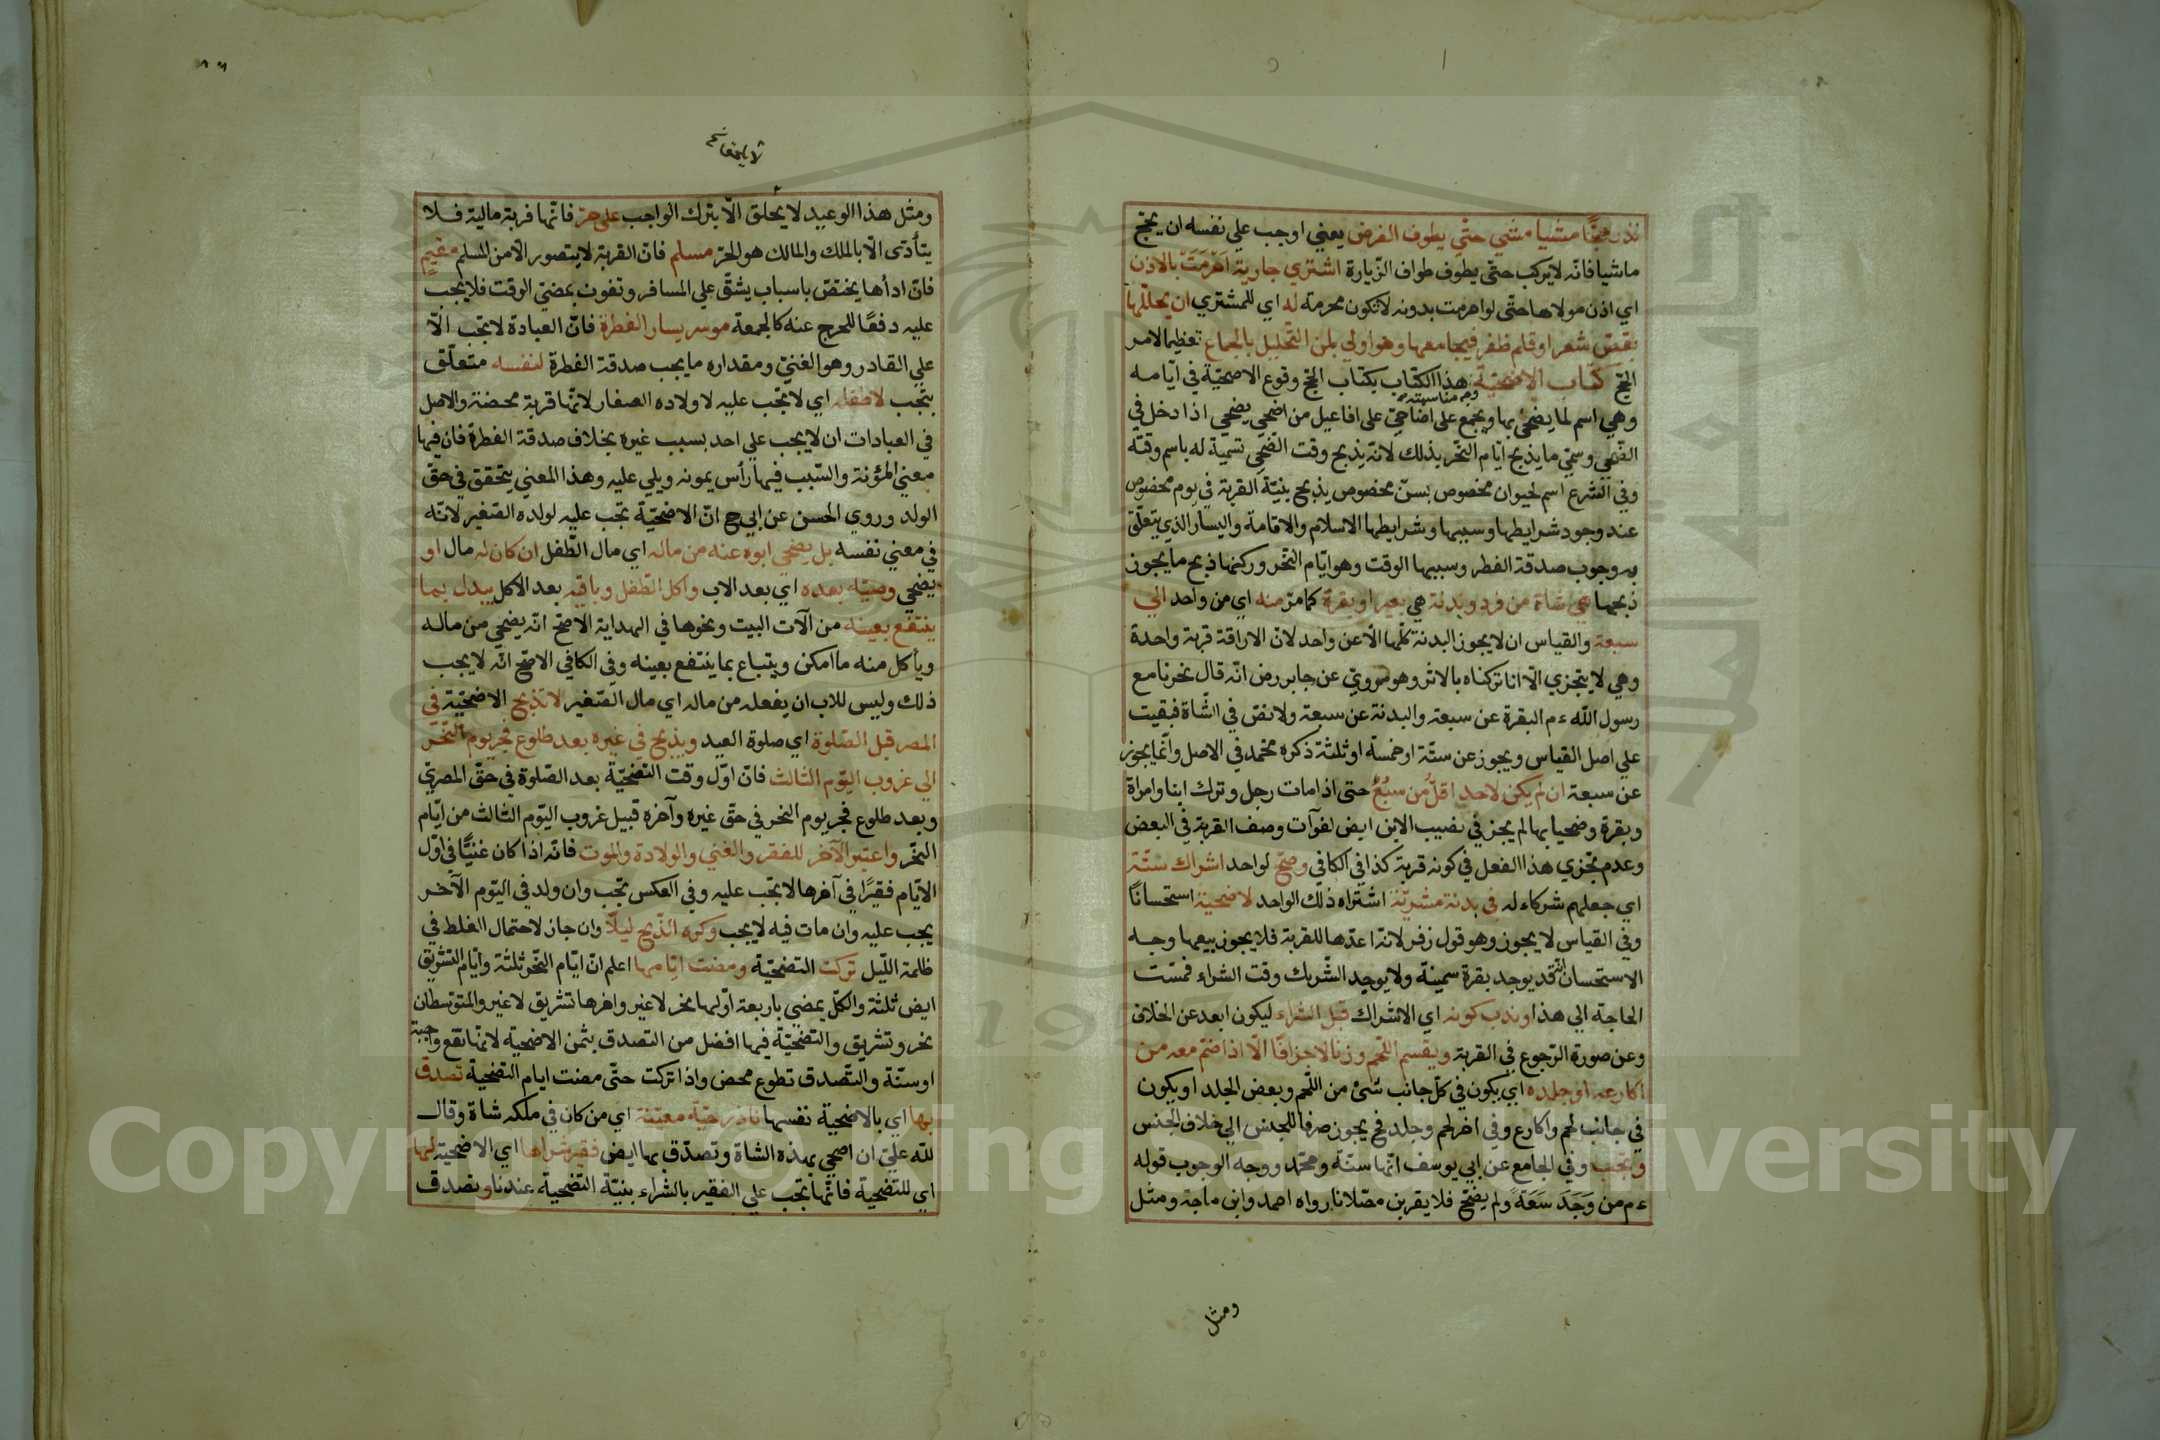 نذر حجًّا مشيا مشي حتّي يطوف الفرض يعني اوجب علي نفسه ان يحجّ
ماشيا فانّه لايركب حتّي يطوف طواف الزّيارة اشتري جارية احرمت بالاذن
اي اذن مولاها حتّي لو احرمت بدونه لاتكون محرمة له اي للمشتري ان يحلّلها
بقصّ شعر او قلم ظفر فيجامعها وهو اولي من التّحليل بالجماع تعظيما لامر
الحجّ كتاب الاضحيّة هذا الكتاب بكتاب الحجّ وقوع الاضحيّة في ايّامه
وجه مناسبته
وهي اسم لما يضحّي بها ويجمع علي اضاحيّ علي افاعيل من اضحي يضحي اذا دخل في
الضّحي وسمّي ما يذبح ايّام النّحر بذلك لانّه يذبح وقت الضّحي تسمية له باسم وقته
وفي الشرع اسم لحيوان مخصوص بسنّ مخصوص يذبح بنيّة القربة في يوم مخصوص
عند وجود شرايطها وسببها وشرايطها الاسلام والاقامة واليسار الذي يتعلّق
به وجوب صدقة الفطر وسببها الوقت وهو ايّام النّحر وركنها ذبح ما يجوز
ذبحها هي شاة من فرد وبدنة هي بعير او بقرة كما مرّ منه اي من واحد الي
سبعة والقياس ان لايجوز البدنة كلّها الّا عن واحد لانّ الاراقة قربة واحدة
وهي لا يتجزي الّا انا تركناه بالاثر وهو مرويّ عن جابر رض انّه قال نحرنا مع
رسول اللّه ءم البقرة عن سبعة والبدنة عن سبعة ولانصّ في الشّاة فبقيت
علي اصل القياس ويجوز عن ستّة او خمسة او ثلثة ذكره محمّد في الاصل وانّما يجوز
عن سبعة ان لم يكن لاحد اقلّ من سبع حتّى اذا مات رجل وترك ابنا وامراة
وبقرة وضحيا بها لم يجز في نصيب الابن ايض لفوات وصف القربة في البعض
وعدم تجّزي هذا الفعل في كونه قربة كذا في الكافي وصحّ لواحد اشراك ستّة
اي جعلهم شركاء له في بدنة مشريّة اشتراه ذلك الواحد لاضحية استحسانًا
وفي القياس لا يجوز وهو قول زفر لانّه اعدّها للقربة فلا يجوز بيعها وجه
الاستحسان انّه قد يوجد بقرة سمينة ولا يوجد الشّريك وقت الشراء فمسّت
الحاجة الي هذا وندب كونه اي الاشراك قبل الشراء ليكون ابعد عن الخلاف
وعن صورة الرّجوع في القربة ويقسم اللّحم وزنا لاجزافًا الّا اذا ضمّ معه من
اكارعه او جلده اي يكون في كلّ جانب شئ من اللّحم وبعض الجلد او يكون
في جانب لحم واكارع وفي اخر لحم وجلد فح يجوز صرفا للجنس الي خلاف الجنس
وتجب وفي الجامع عن ابي يوسف انّها سنّة ومحمّد ووجه الوجوب قوله
ءم من وَجَدَ سَعَةً ولم يضحّ فلا يقربن مصّلانا رواه احمد وابن ماجة ومثل
ومثل
ومثل هذا الوعيد لا يحلق الّا بترك الواجب علي حرّ فانّها قربة مالية فلا
يتأدّى الّا بالملك والمالك هو الحرّ مسلم فانّ القربة لا يتصور الّا من المسلم مقيم
فانّ ادأها يختصّ باسباب يشقّ علي المسافر وتفوت بمضيّ الوقت فلا يجب
عليه دفعًا للحرج عنه كالجمعة موسر يسار الفطرة فانّ العبادة لاتجب الّا
علي القادر وهو الغنيّ ومقداره ما يجب صدقة الفطرة لنفسه متعلّق
بتجب لا طفله اي لا تجب عليه لاولاده الصغار لانّها قربة محضة والاصل
في العبادات ان لا يجب علي احد بسبب غيره بخلاف صدقة الفطرة فان فيها
معني المؤنة والسّبب فيها رأس يمونه ويلي عليه وهذا المعني يتحقق في حقّ
الولد وروي الحسن عن ابي ح انّ الاضحيّة تجب عليه لولده الصّغير لانّه
في معني نفسه بل يضحي ابوه عنه من ماله اي مال الطّفل ان كان له مال او
يضحي وصيّه بعده اي بعد الاب واكل الطّفل وباقيه بعد الاكل يبدل بما
ينتفع بعينه من آلات البيت ونحوها في الهداية الاصحّ انّه يضحي من ماله
ويأكل منه ما امكن ويبتاع بما ينتفع بعينه وفي الكافي الاصحّ انّه لا يجب
ذلك وليس للاب ان يفعله من ماله اي مال الصّغير لاتذبح الاضحيّة في
المصر قبل الصّلوة اي صلوة العيد ويذبح في غيره بعد طلوع فجر يوم النّحر
الي غروب اليّوم الثالث فانّ اوّل وقت التضحيّة بعد الصّلوة في حقّ المصريّ
وبعد طلوع فجر يوم النحر في حقّ غيره وآخره قبيل غروب اليّوم الثالث من ايّام
النّحر واعتبر الآخر للفقر والغني والولادة والموت فانّه اذا كان غنيًّا في اوّل
الايّام فقيرًا في آخرها لا تجب عليه وفي العكس تجب وان ولد في اليّوم الآخر
يجب عليه وان مات فيه لايجب وكره الذّبح ليلًا وان جاز لاحتمال الغلط في
ظلمة اللّيل تركت التضحيّة ومضت ايّامها اعلم انّ ايّام النّحر ثلثة وايّام التشريق
ايض ثلثة والكلّ يمضي باربعة اوّلها نحر لاغير واخرها تشريق لاغير والمتوسطان
نحر وتشريق والتضحيّة فيها افضل من التصدق بثمن الاضحية لانّها تقع واجبة
او سنّة والتّصدق تطوع محض واذا تركت حتّي مضت ايام التضحية تصدق
بها اي بالاضحية نفسها ناذر حيّة معيّنة اي من كان في ملكه شاة وقال
للّه عليّ ان اصحي بهذه الشاة وتصدّق بها ايض فقير شراها اي الاضحيّة لها
اي للتضحية فانّها تجب علي الفقير بالشراء بنيّة التضحية عندنا ويصدق
Copyright © King Saud University